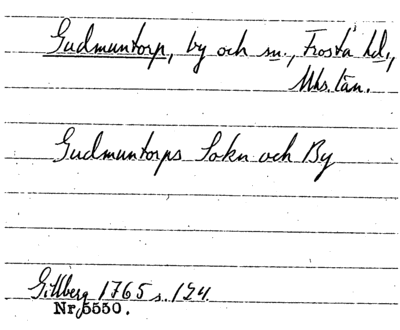 Gudmuntorp, by och sn., Frosta hd.,
Mhs. län.
Gudmuntorps Sokn och By
Gillberg 1765 s. 124.
Nr 5550.